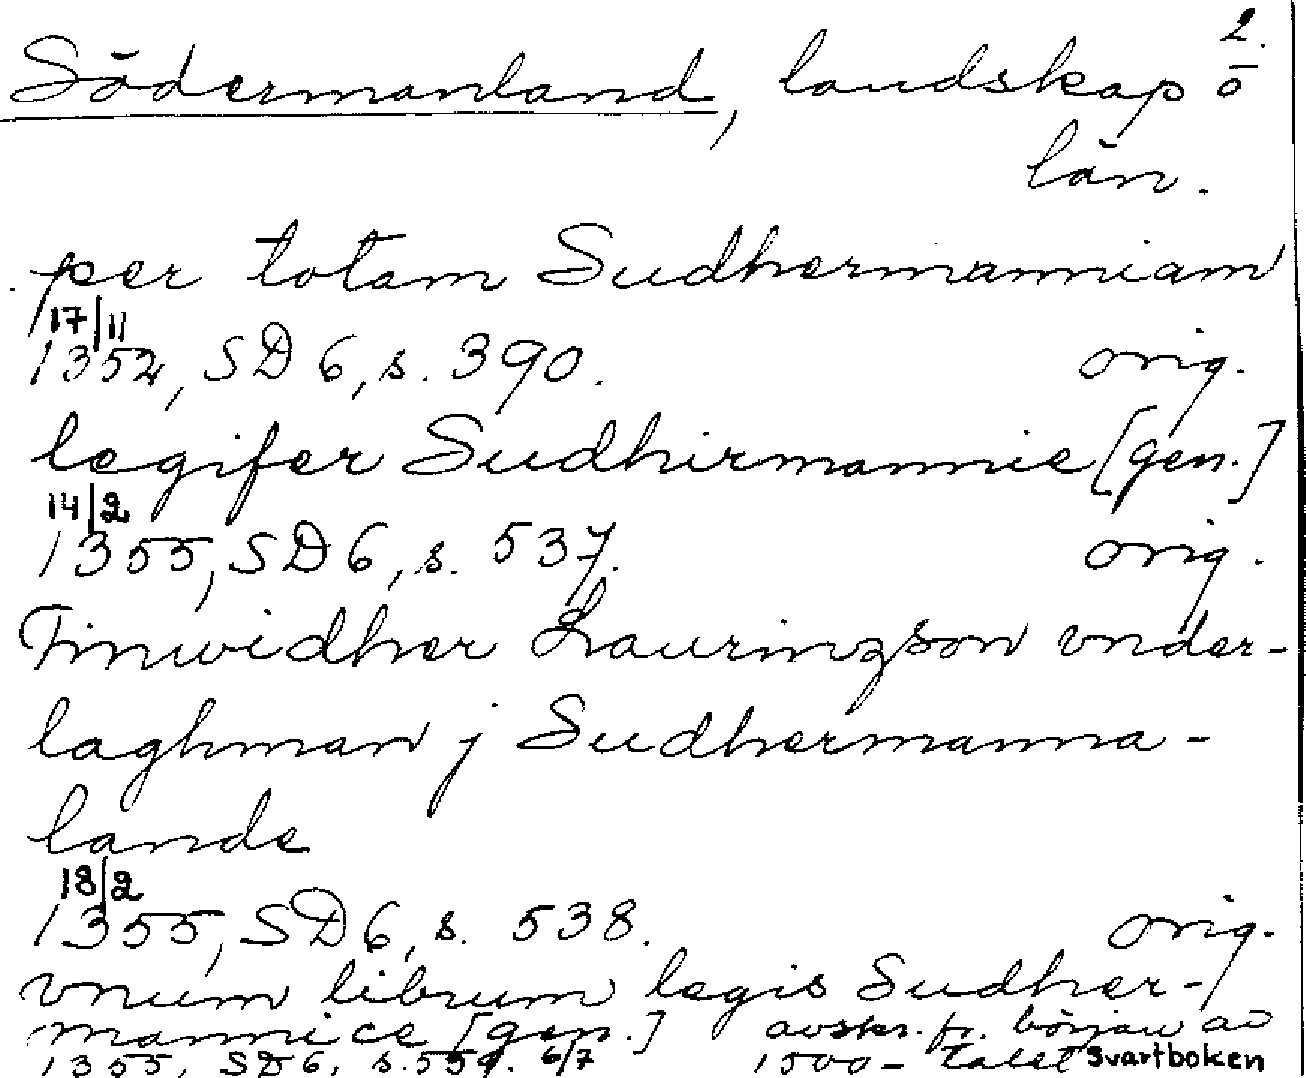 2.
Södermanland, landskap o
län.
per totam Sudhermanniam
17/11
1352, SD 6, s. 390. orig.
legifer Sudhirmannie [gen.]
14/2
1355, SD 6, s. 537. orig.
Finwidher Laurinzson vnder-
laghman j Sudhermanna-
lande
18/2
1355, SD 6, s. 538. orig.
vnum librum legis Sudher-
mannice [gen.] avskr. fr. början av
1355, SD 6, s. 559. 6/7 1500-talet Svartboken